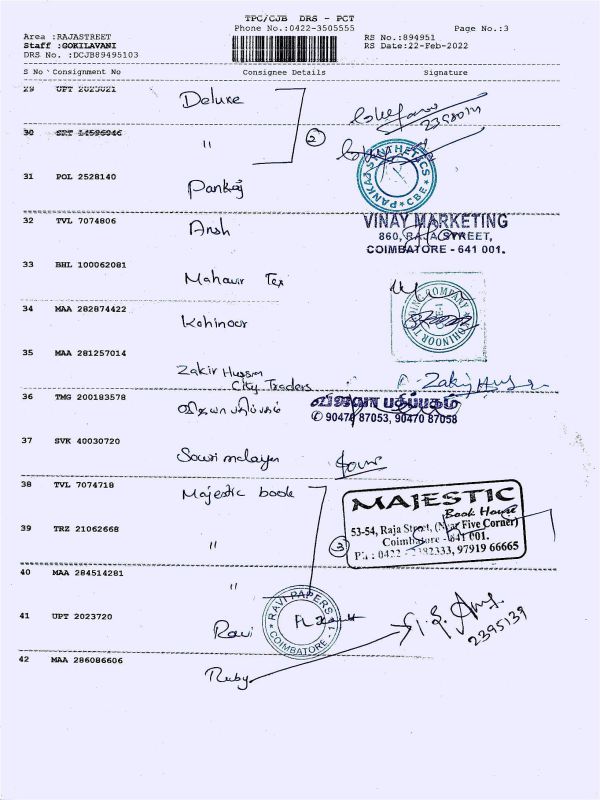 TPC/CJB DRS - PCT
Phone No.:0422-3505555 Page No.:3
Area :RAJASTREET RS No.:894951
Staff :GOKILAVANI RS Date:22-Feb-2022
DRS No. :DCJB89495103
S No Consignment No Consignee Details Signature
29 UPT 2023021 Deluxe
2398017
30 SRT 14596046 "
2
31 POL 2528140 Pankaj
PANKAJ SYNTHETICS * CBE *
32 TVL 7074806 Ansh
VINAY MARKETING
860, RAJA STREET,
COIMBATORE - 641 001.
33 BHL 100062081 Mahavir Tex
34 MAA 282874422 Kohinoor
KOHINOOR TRADING COMPANY
35 MAA 281257014 Zakir Hussain
City Traders
Zakir Husain
36 TMG 200183578 விஜயா பதிப்பகம்
விஜயா பதிப்பகம்
✆ 90470 87053, 90470 87058
37 SVK 40030720
38 TVL 7074718 Majestic book
MAJESTIC
Book House
53-54, Raja Street, (Near Five Corner)
Coimbatore - 641 001.
Ph : 0422 - 2382333, 97919 66665
39 TRZ 21062668 "
3
40 MAA 284514281 "
41 UPT 2023720 Ravi
RAVI PAPERS COIMBATORE - 1
2395139
42 MAA 286086606 Ruby